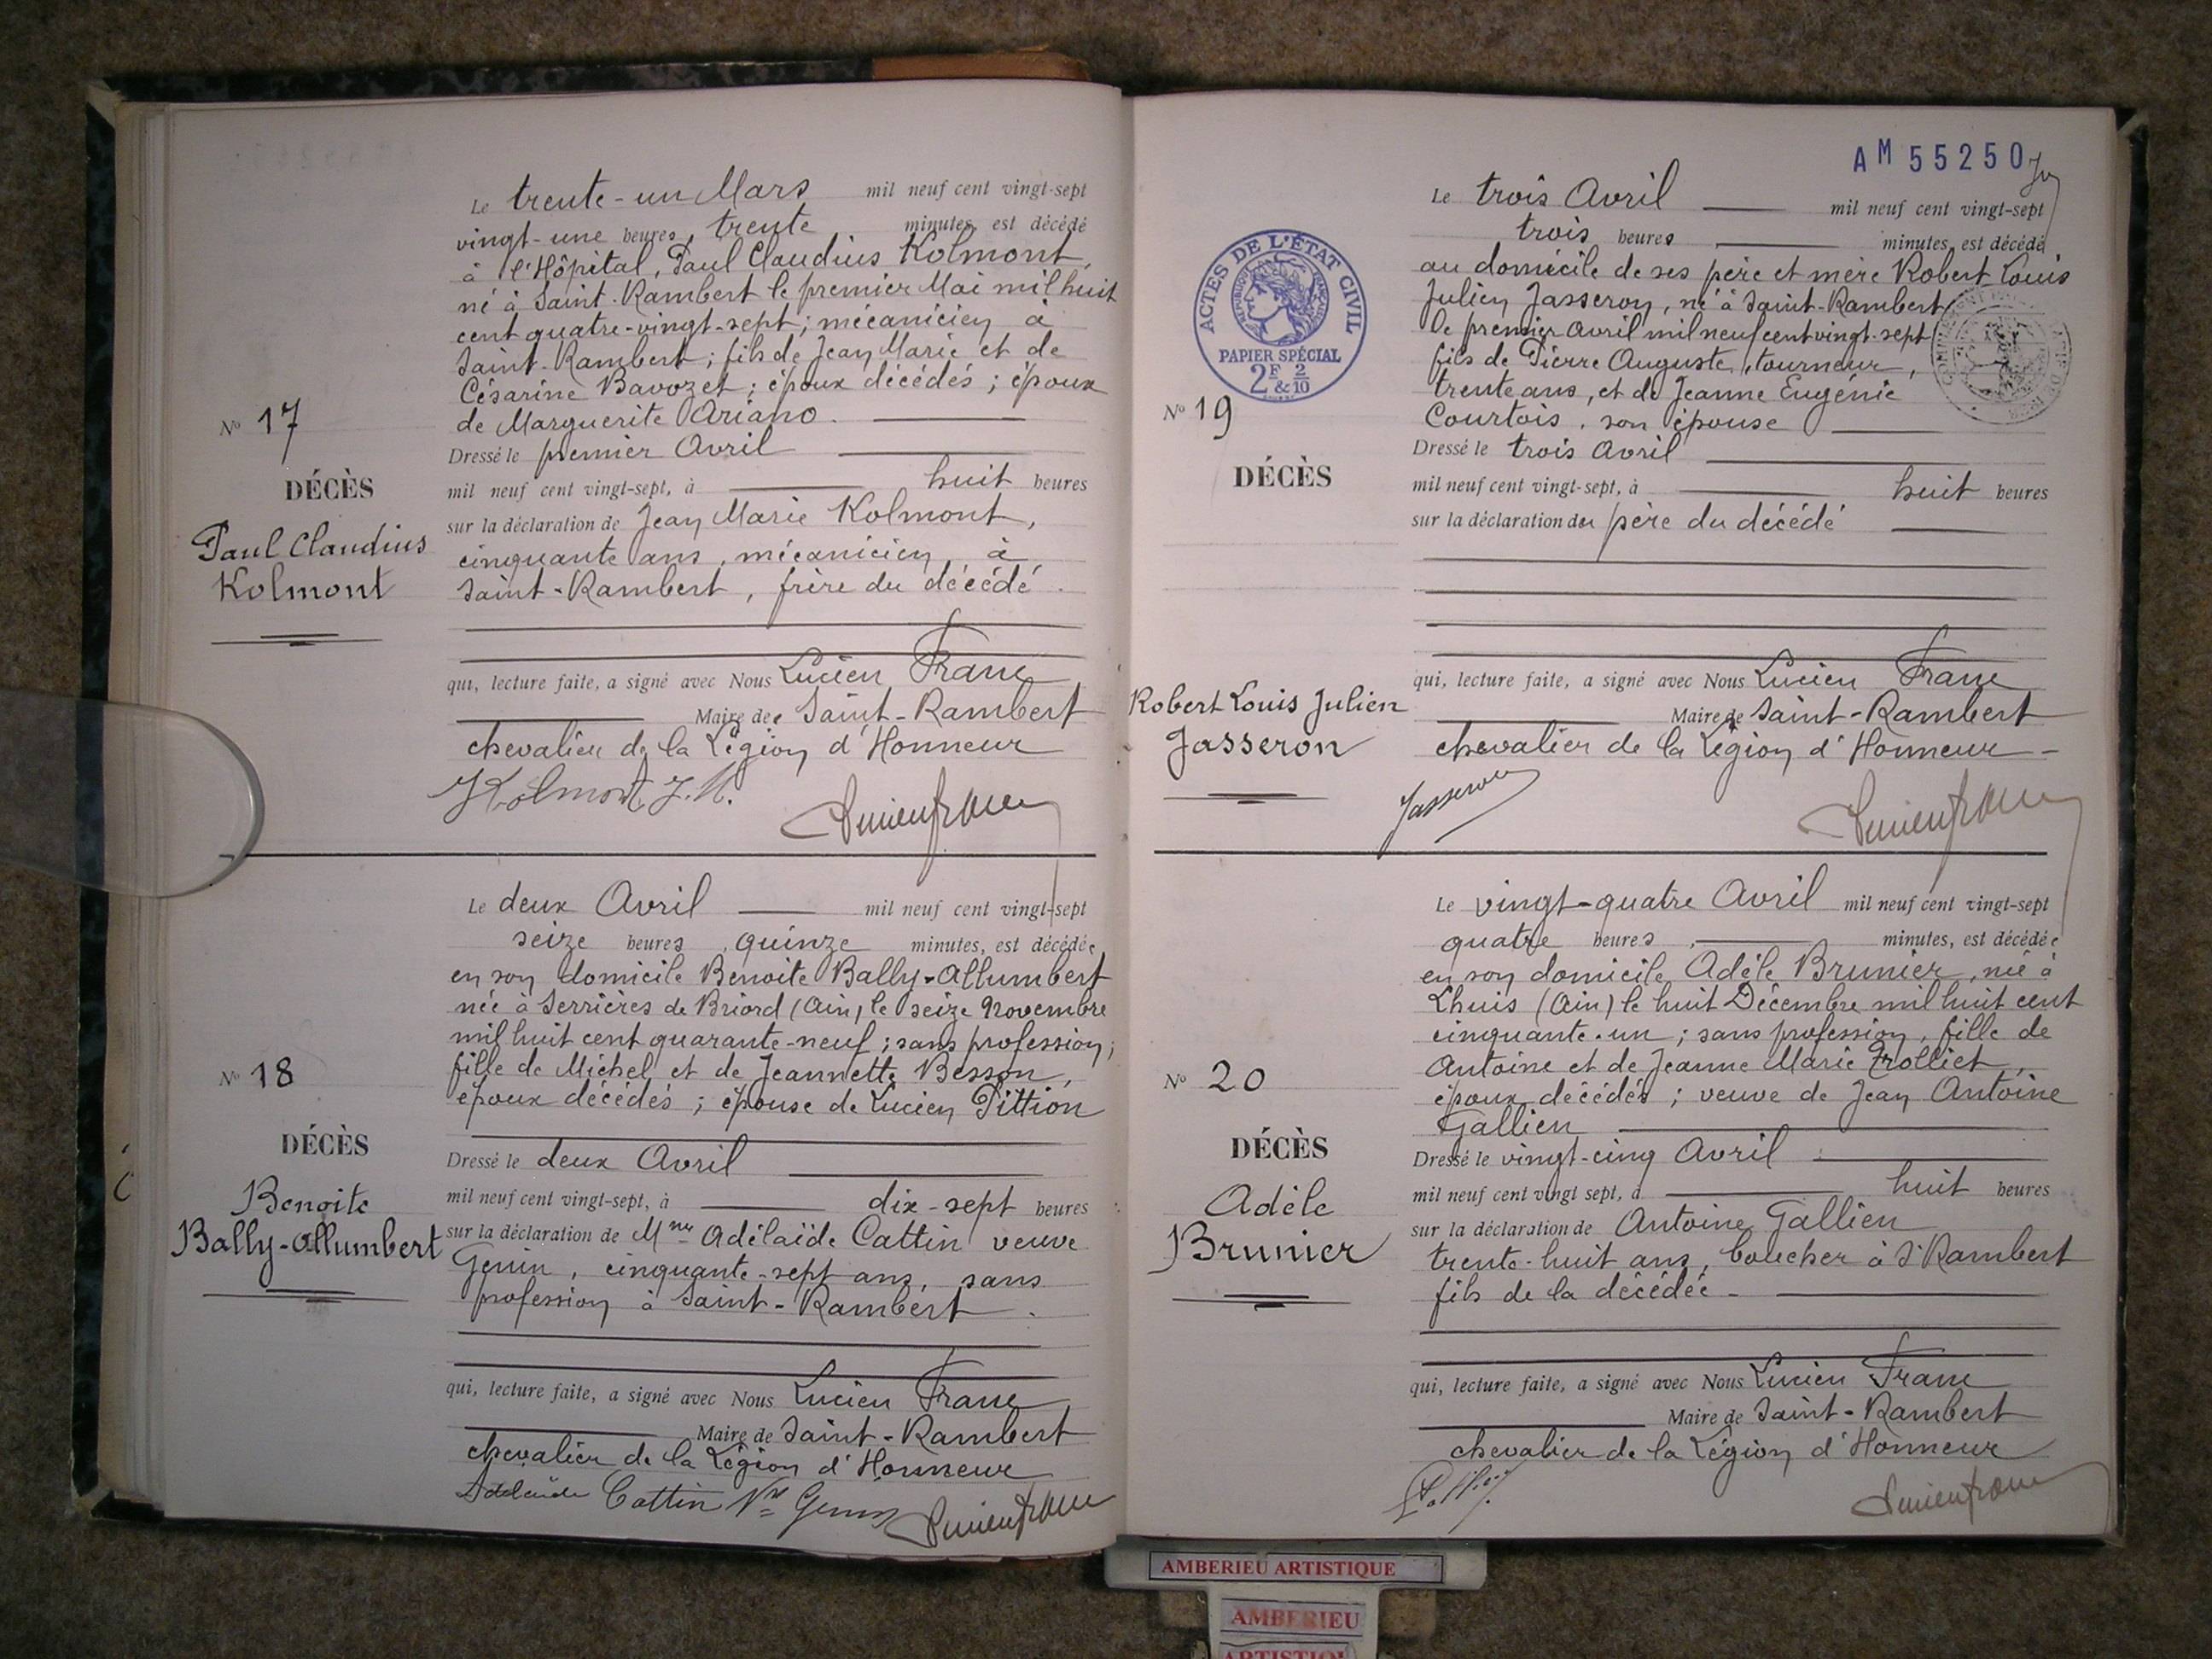 Le trente-un Mars mil neuf cent vingt-sept
vingt-une heures, trente minutes, est décédé
à l'Hôpital, Paul Claudius Kolmont,
né à Saint-Rambert le premier Mai mil huit
cent quatre-vingt-sept; mécanicien à
Saint-Rambert; fils de Jean Marie et de
Césarine Bavozet; époux décédés; époux
de Marguerite Ariano.
Dressé le premier Avril
mil neuf cent vingt-sept, à huit heures
sur la déclaration de Jean Marie Kolmont,
cinquante ans, mécanicien à
Saint-Rambert, frère du décédé.
qui, lecture faite, a signé avec Nous Lucien Franc
Maire de Saint-Rambert
chevalier de la Légion d'Honneur
Kolmont J. M.
Lucien franc
No 17
DÉCÈS
Paul Claudius
Kolmont
Le deux Avril mil neuf cent vingt-sept
seize heures, quinze minutes, est décédée
en son domicile Benoite Bally-Allumbert
née à Serrières de Briord (Ain) le seize Novembre
mil huit cent quarante-neuf; sans profession;
fille de Michel et de Jeannette Besson,
époux décédés; épouse de Lucien Pittion
Dressé le deux Avril
mil neuf cent vingt-sept, à dix-sept heures
sur la déclaration de Mme Adélaïde Cattin veuve
Genin, cinquante-sept ans, sans
profession à Saint-Rambert.
qui, lecture faite, a signé avec Nous Lucien Franc
Maire de Saint-Rambert
chevalier de la Légion d'Honneur
Adelaide Cattin Vve Genin
Lucien franc
No 18
DÉCÈS
Benoite
Bally-Allumbert
AM 55250
ACTES DE L'ÉTAT CIVIL
RÉPUBLIQUE FRANÇAISE
PAPIER SPÉCIAL
2F & 2/10
Le trois Avril mil neuf cent vingt-sept
trois heures minutes, est décédé
au domicile de ses père et mère Robert Louis
Julien Jasseron, né à Saint-Rambert
le premier avril mil neuf cent vingt-sept
fils de Pierre Auguste, tourneur,
trente ans, et de Jeanne Eugénie
Courtois, son épouse
Dressé le trois Avril
mil neuf cent vingt-sept, à huit heures
sur la déclaration du père du décédé
qui, lecture faite, a signé avec Nous Lucien Franc
Maire de Saint-Rambert
chevalier de la Légion d'Honneur
Jasseron
Lucien franc
No 19
DÉCÈS
Robert Louis Julien
Jasseron
Le vingt-quatre Avril mil neuf cent vingt-sept
quatre heures, minutes, est décédée
en son domicile Adèle Brunier, née à
Lhuis (Ain) le huit Décembre mil huit cent
cinquante-un; sans profession, fille de
Antoine et de Jeanne Marie Trolliet,
époux décédés; veuve de Jean Antoine
Gallien
Dressé le vingt-cinq Avril
mil neuf cent vingt sept, à huit heures
sur la déclaration de Antoine Gallien
trente-huit ans, boucher à St Rambert
fils de la décédée
qui, lecture faite, a signé avec Nous Lucien Franc
Maire de Saint-Rambert
chevalier de la Légion d'Honneur
Lucien franc
No 20
DÉCÈS
Adèle
Brunier
AMBERIEU ARTISTIQUE
AMBERIEU